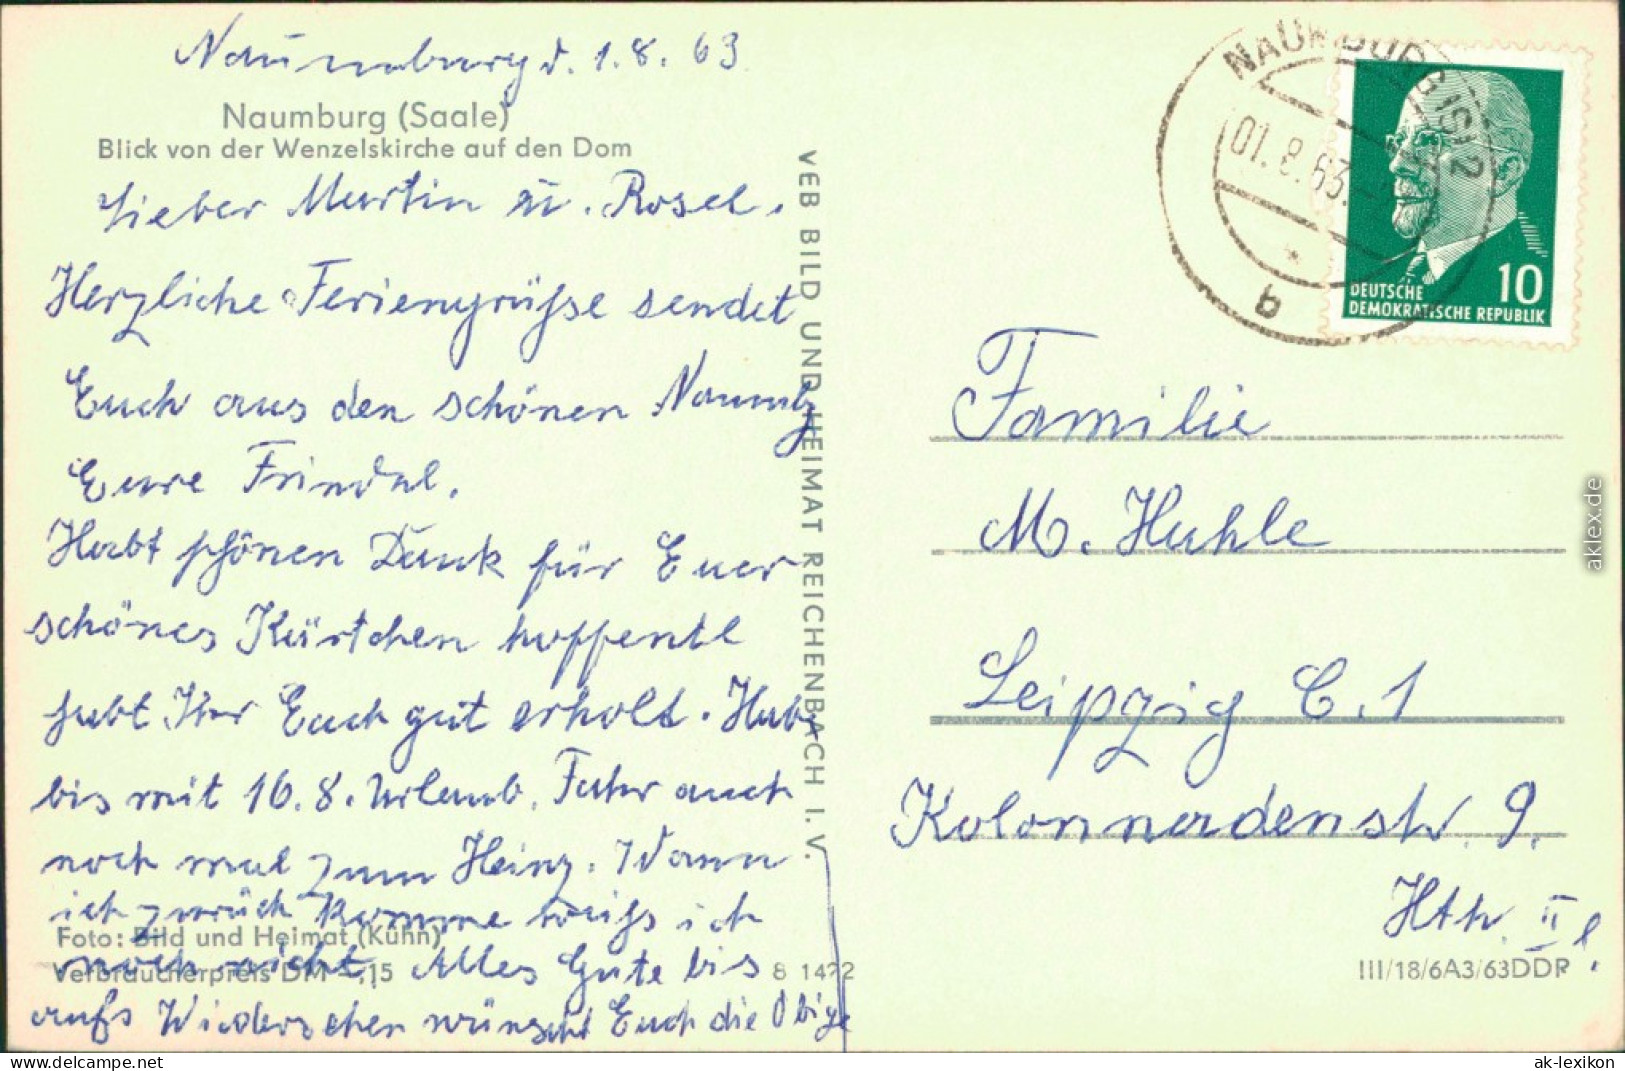 Naumburg d. 1.8.63
Naumburg (Saale)
Blick von der Wenzelskirche auf den Dom
Lieber Martin u. Rosel.
Herzliche Feriengrüße sendet
Euch aus den schönen Naumbg
Eure Friedal.
Habt schönen Dank für Euer
schönes Kärtchen hoffentl
habt Ihr Euch gut erholt. Habe
bis mit 16.8. Urlaub. Fahr auch
noch mal zum Heinz. Wann
ich zurück komme weiß ich
noch nicht. Alles Gute bis
aufs Wiedersehen wünscht Euch die Obige
Foto: Bild und Heimat (Kühn)
Verbraucherpreis DM -,15
8 1422
VEB BILD UND HEIMAT REICHENBACH I. V.
NAUMBURG (S) 2
01.8.63.
b
10
DEUTSCHE
DEMOKRATISCHE REPUBLIK
Familie
M. Huhle
Leipzig C.1
Kolonnadenstr. 9.
Hth. II l.
III/18/6A3/63DDR
aklex.de
www.delcampe.net
ak-lexikon